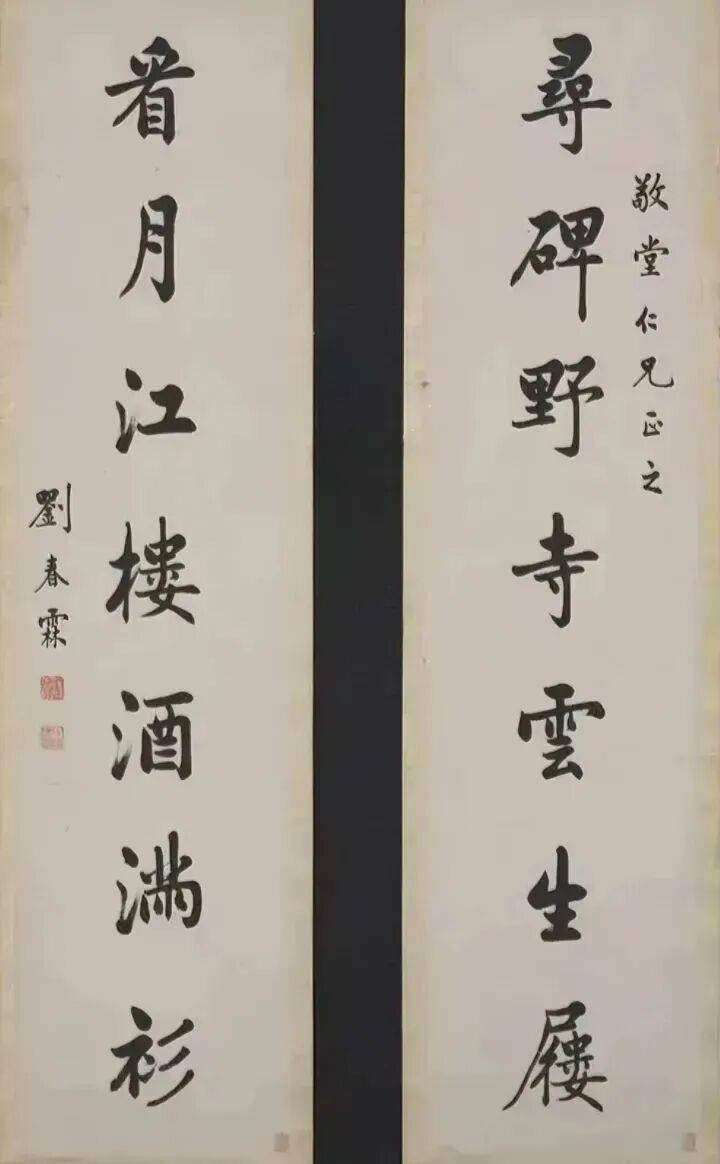 敬堂仁兄正之
尋碑野寺雲生屨
看月江樓酒滿衫
劉春霖